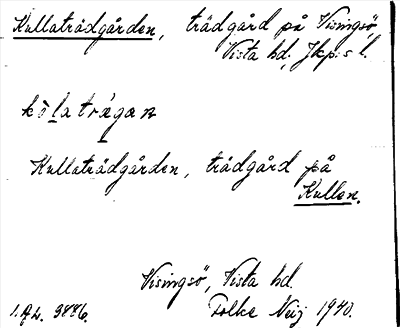 Kullaträdgården, trädgård på Visingsö,
Vista hd, Jkp:s l.
kòlatrágan
Kullaträdgården, trädgård på
Kullen.
Visingsö, Vista hd.
Folke Neij 1940.